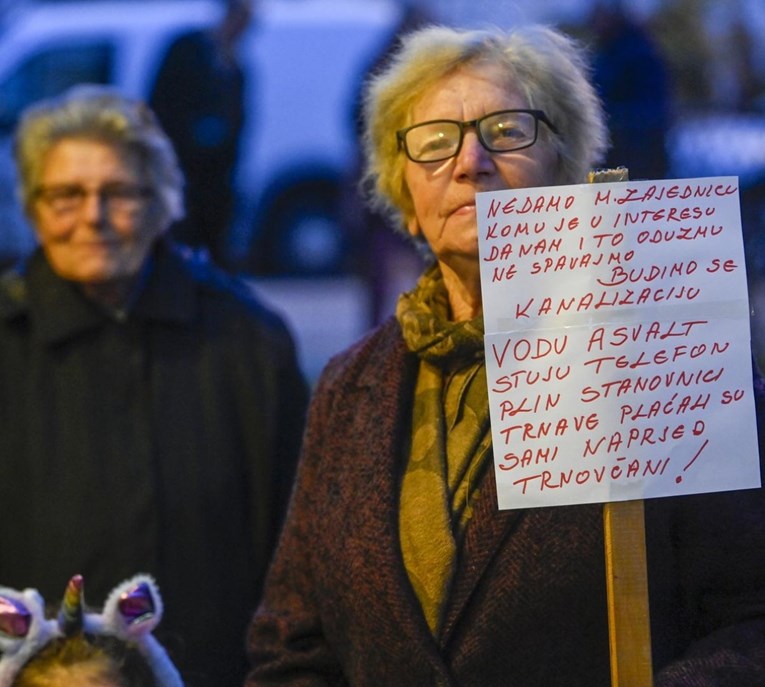 NEDAMO M. ZAJEDNICU
KOMU JE U INTERESU
DA NAM I TO ODUZMU
NE SPAVAJMO
BUDIMO SE
KANALIZACIJU
VODU ASVALT
STUJU TELEFON
PLIN STANOVNICI
TRNAVE PLAĆALI SU
SAMI NAPRJED
TRNOVČANI!